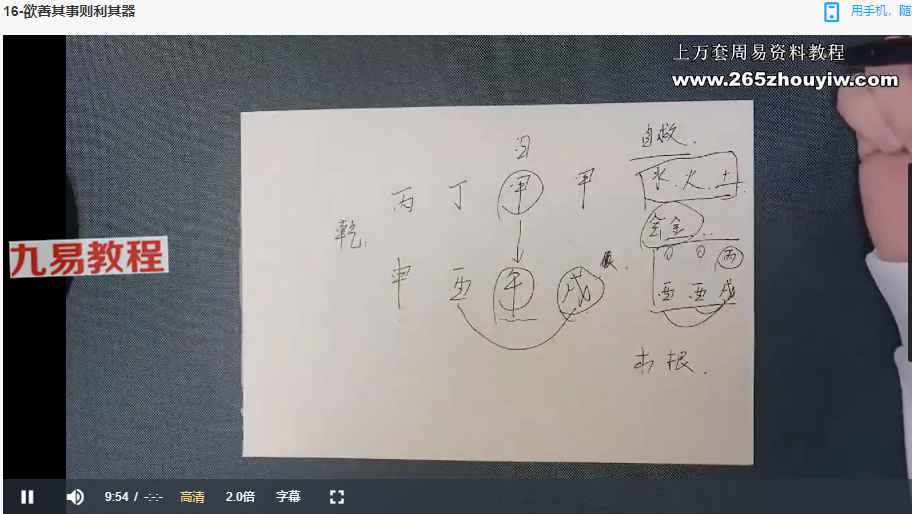 16-欲善其事则利其器
用手机，随
上万套周易资料教程
www.265zhouyiw.com
自救.
水.火.土.
丙 丁 甲 甲
乾:
会金..
丙
九易教程
申 酉 午 戌
酉 酉 戌
本根.
9:54 / -:-:-
高清
2.0倍
字幕